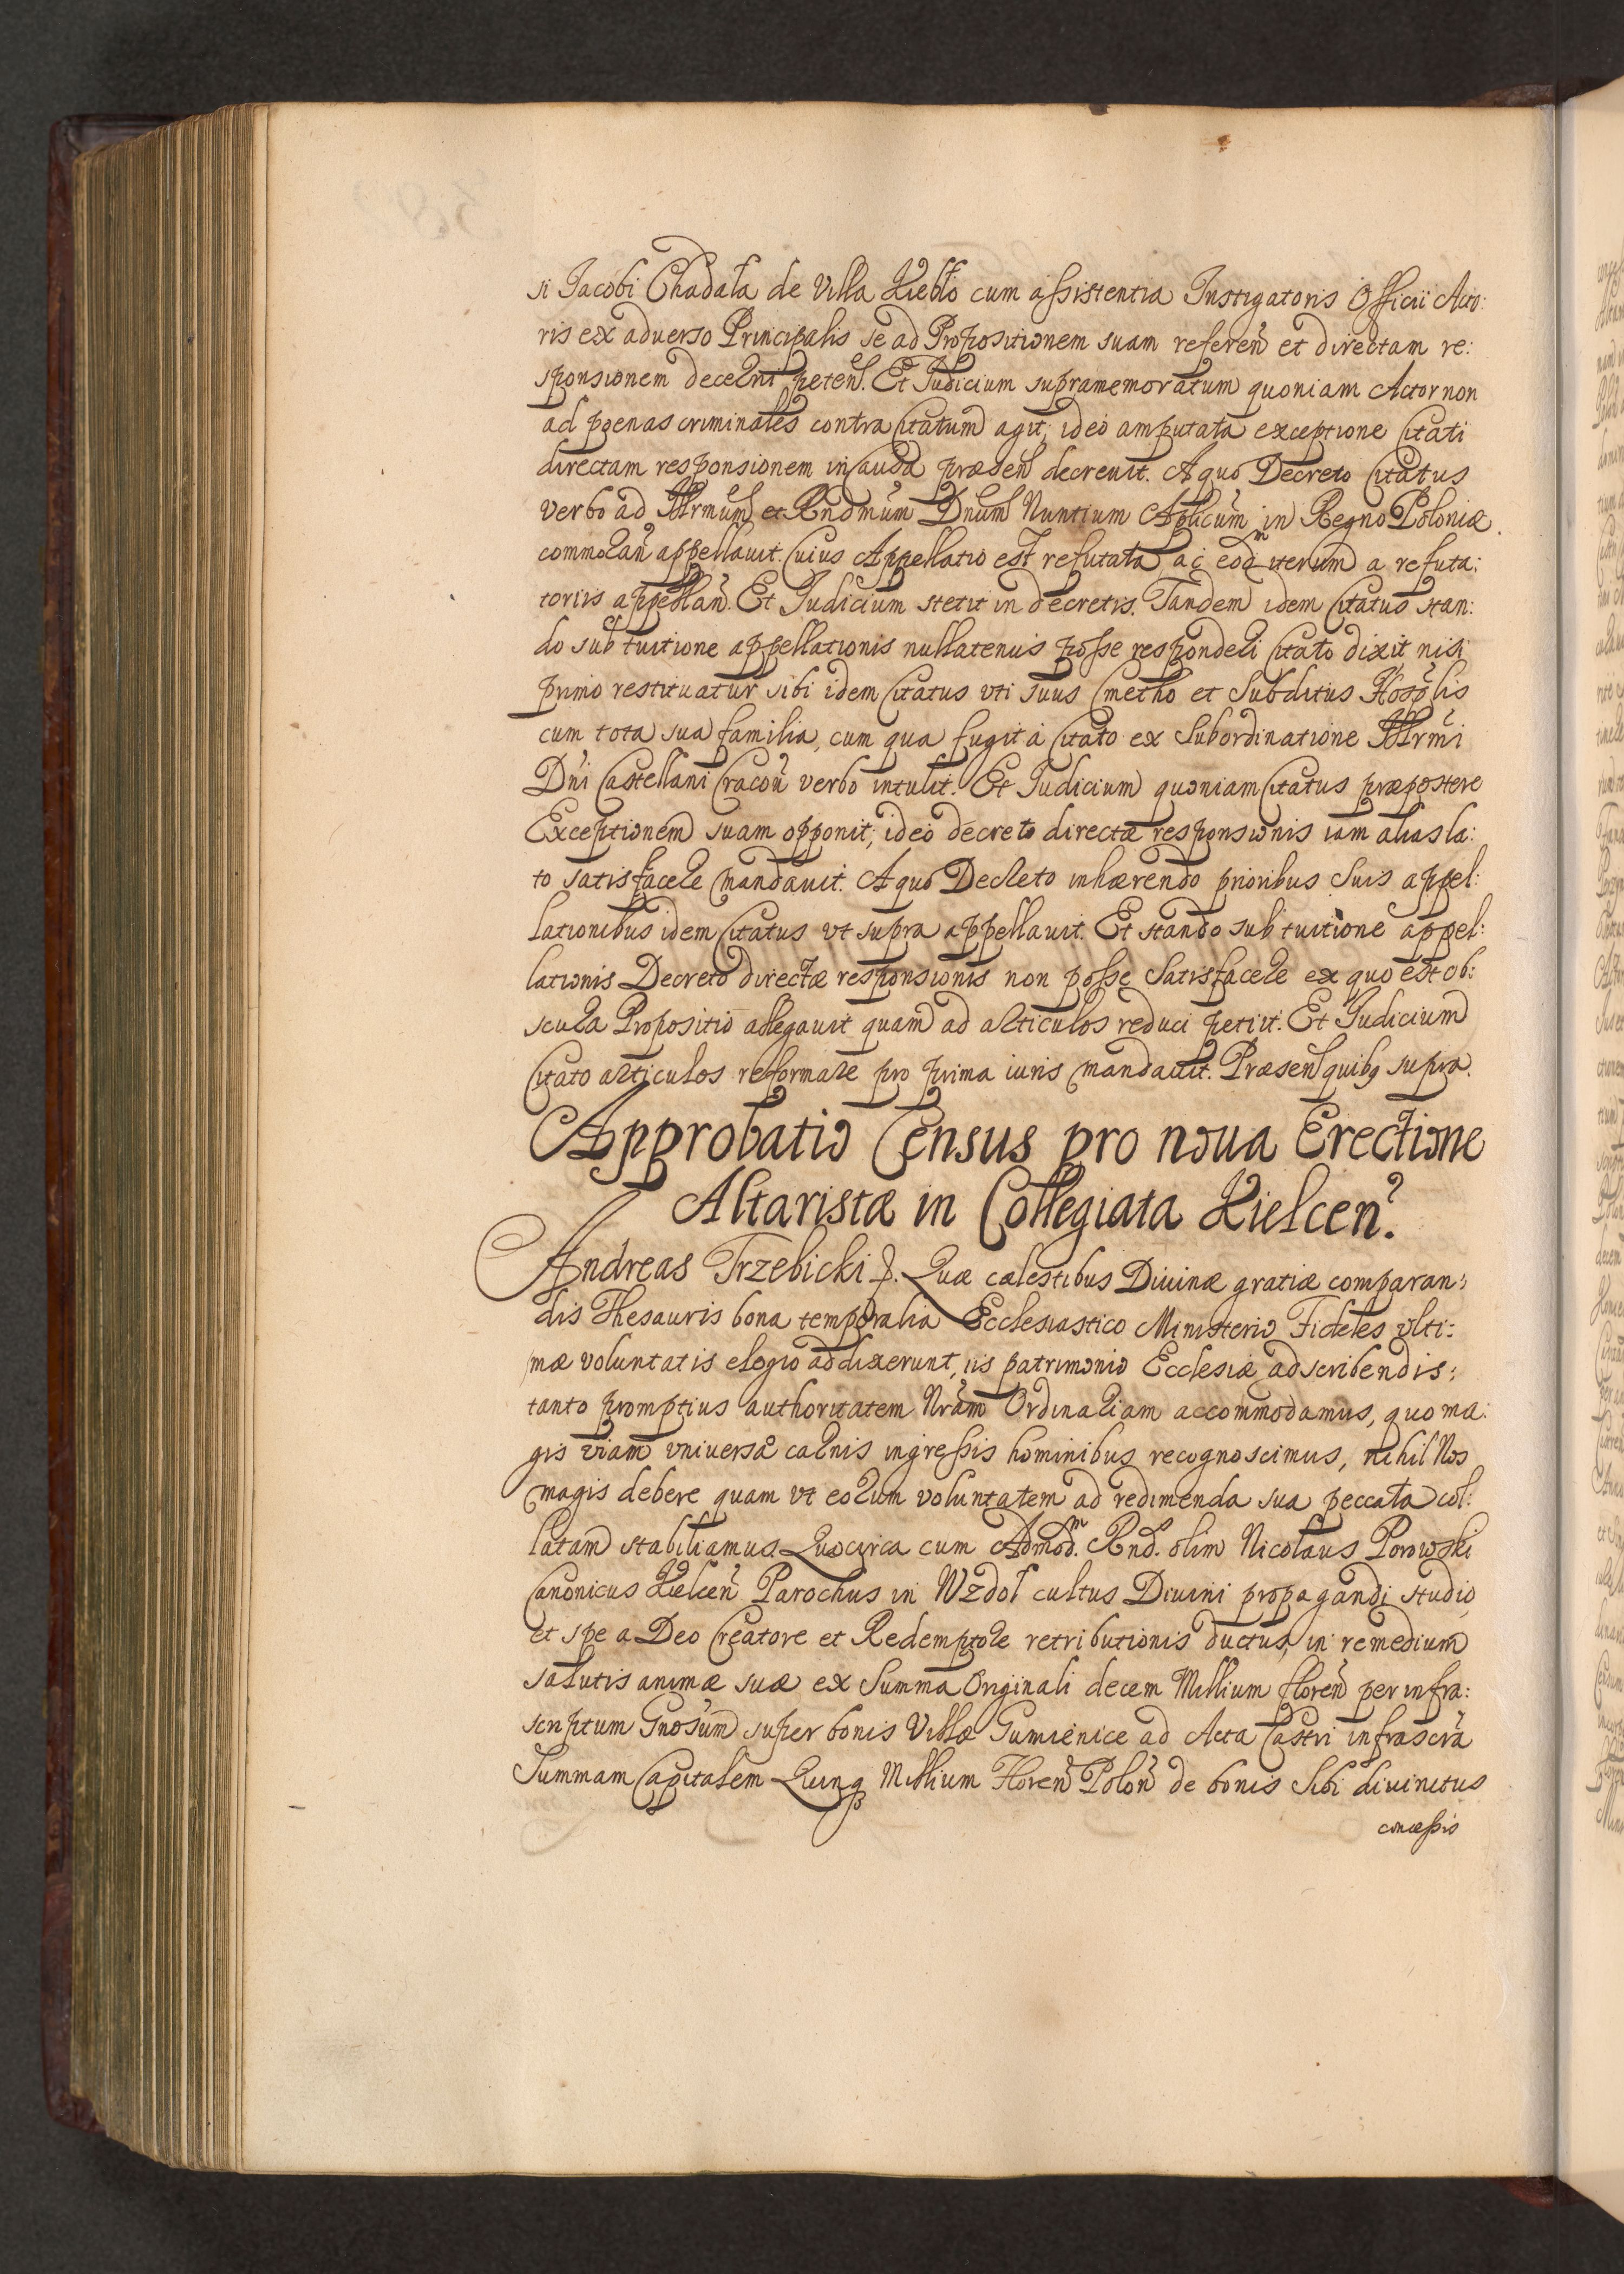 si Jacobi Chadała de Villa Kiebło cum assistentia Instigatoris Officii Acto:
ris ex aduerso Principalis se ad Propositionem suam referen et directam re:
sponsionem decerni peten. Et Judicium supramemoratum quoniam Actor non
ad pœnas criminales contra Citatum agit, ideo amputata exceptione Citati
directam responsionem in Causa præsen decreuit. A quo Decreto Citatus
verbo ad Illrmum et Rndmum Dnum Nuntium Aplicum in Regno Poloniæ
commoran appellauit. Cuius Appellatio est refutata ac eod m iterum a refuta:
toriis appellan. Et Judicium stetit in decretis. Tandem idem Citatus stan:
do sub tuitione appellationis nullatenus posse responderi Citato dixit, nisi
primo restituatur sibi idem Citatus vti suus Cmetho et Subditus Hosplis
cum tota sua familia, cum qua fugit à Citato ex Subordinatione Illrmi
Dni Castellani Cracon verbo intulit. Et Judicium quoniam Citatus præpostere
Exceptionem suam opponit, ideo decreto directæ responsionis iam alias la:
to satisfacere mandauit. A quo Decreto inhærendo prioribus Suis appel:
lationibus idem Citatus vt supra appellauit. Et stando sub tuitione appel:
lationis Decreto directæ responsionis non posse Satisfacere ex quo est ob:
scura Propositio allegauit quam ad articulos reduci petiit. Et Judicium
Citato articulos reformare pro prima iuris mandauit. Præsen quibg supra.
Approbatio Census pro noua Erectione
Altaristæ in Collegiata Kielcen.
Andreas Trzebicki. Quæ cælestibus Diuinæ gratiæ comparan:
dis Thesauris bona temporalia Ecclesiastico Ministerio Fideles vlti:
mæ voluntatis elogio addixerunt, iis patrimonio Ecclesiæ adscribendis:
tanto promptius authoritatem Nram Ordinariam accommodamus, quo ma:
gis viam vniversæ carnis ingressis hominibus recognoscimus, nihil Nos
magis debere quam vt eorum voluntatem ad redimenda sua peccata col:
latam stabiliamus. Quocirca cum Admod. m Rnd. s olim Nicolaus Porowski
Canonicus Kielcen Parochus in Wzdoł cultus Diuini propagandi studio,
et spe a Deo Creatore et Redemptore retributionis ductus, in remedium
salutis animæ suæ ex Summa Originali decem Millium floren per infra:
scriptum Gnosum super bonis Villæ Gumienice ad Acta Castri infrascra
Summam Capitalem Quinq Millium Floren Polon de bonis Sibi diuinitus
concessis